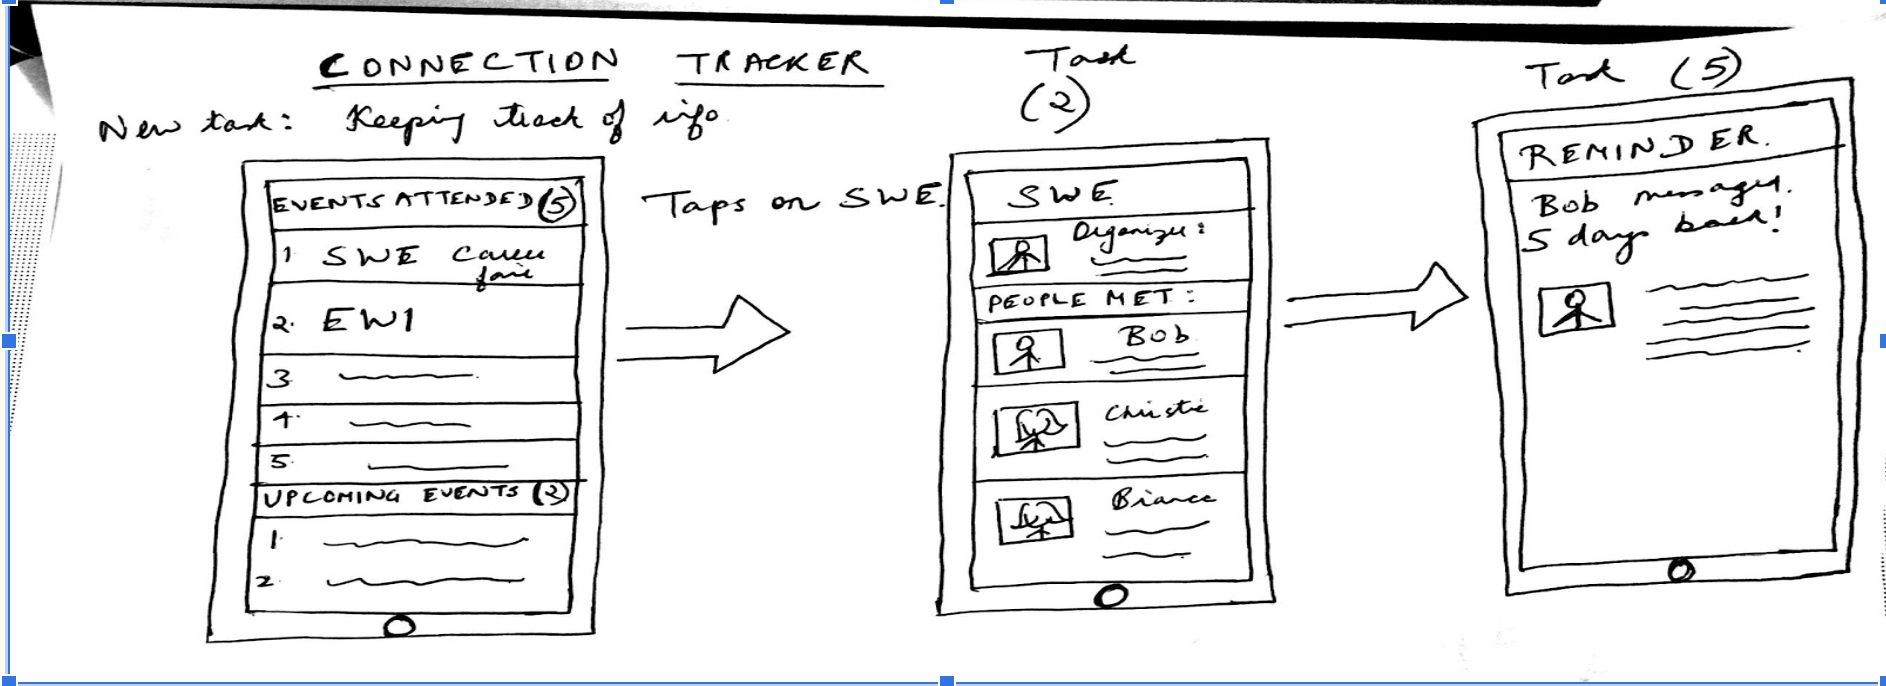 CONNECTION TRACKER
New task: Keeping track of info
EVENTS ATTENDED (5)
1. SWE Career
fair
2. EWI
3.
4.
5.
UPCOMING EVENTS (2)
1.
2.
Taps on SWE.
Task
(2)
SWE
Organizer:
PEOPLE MET:
Bob
Christie
Bianca
Task (5)
REMINDER.
Bob messaged
5 days back!